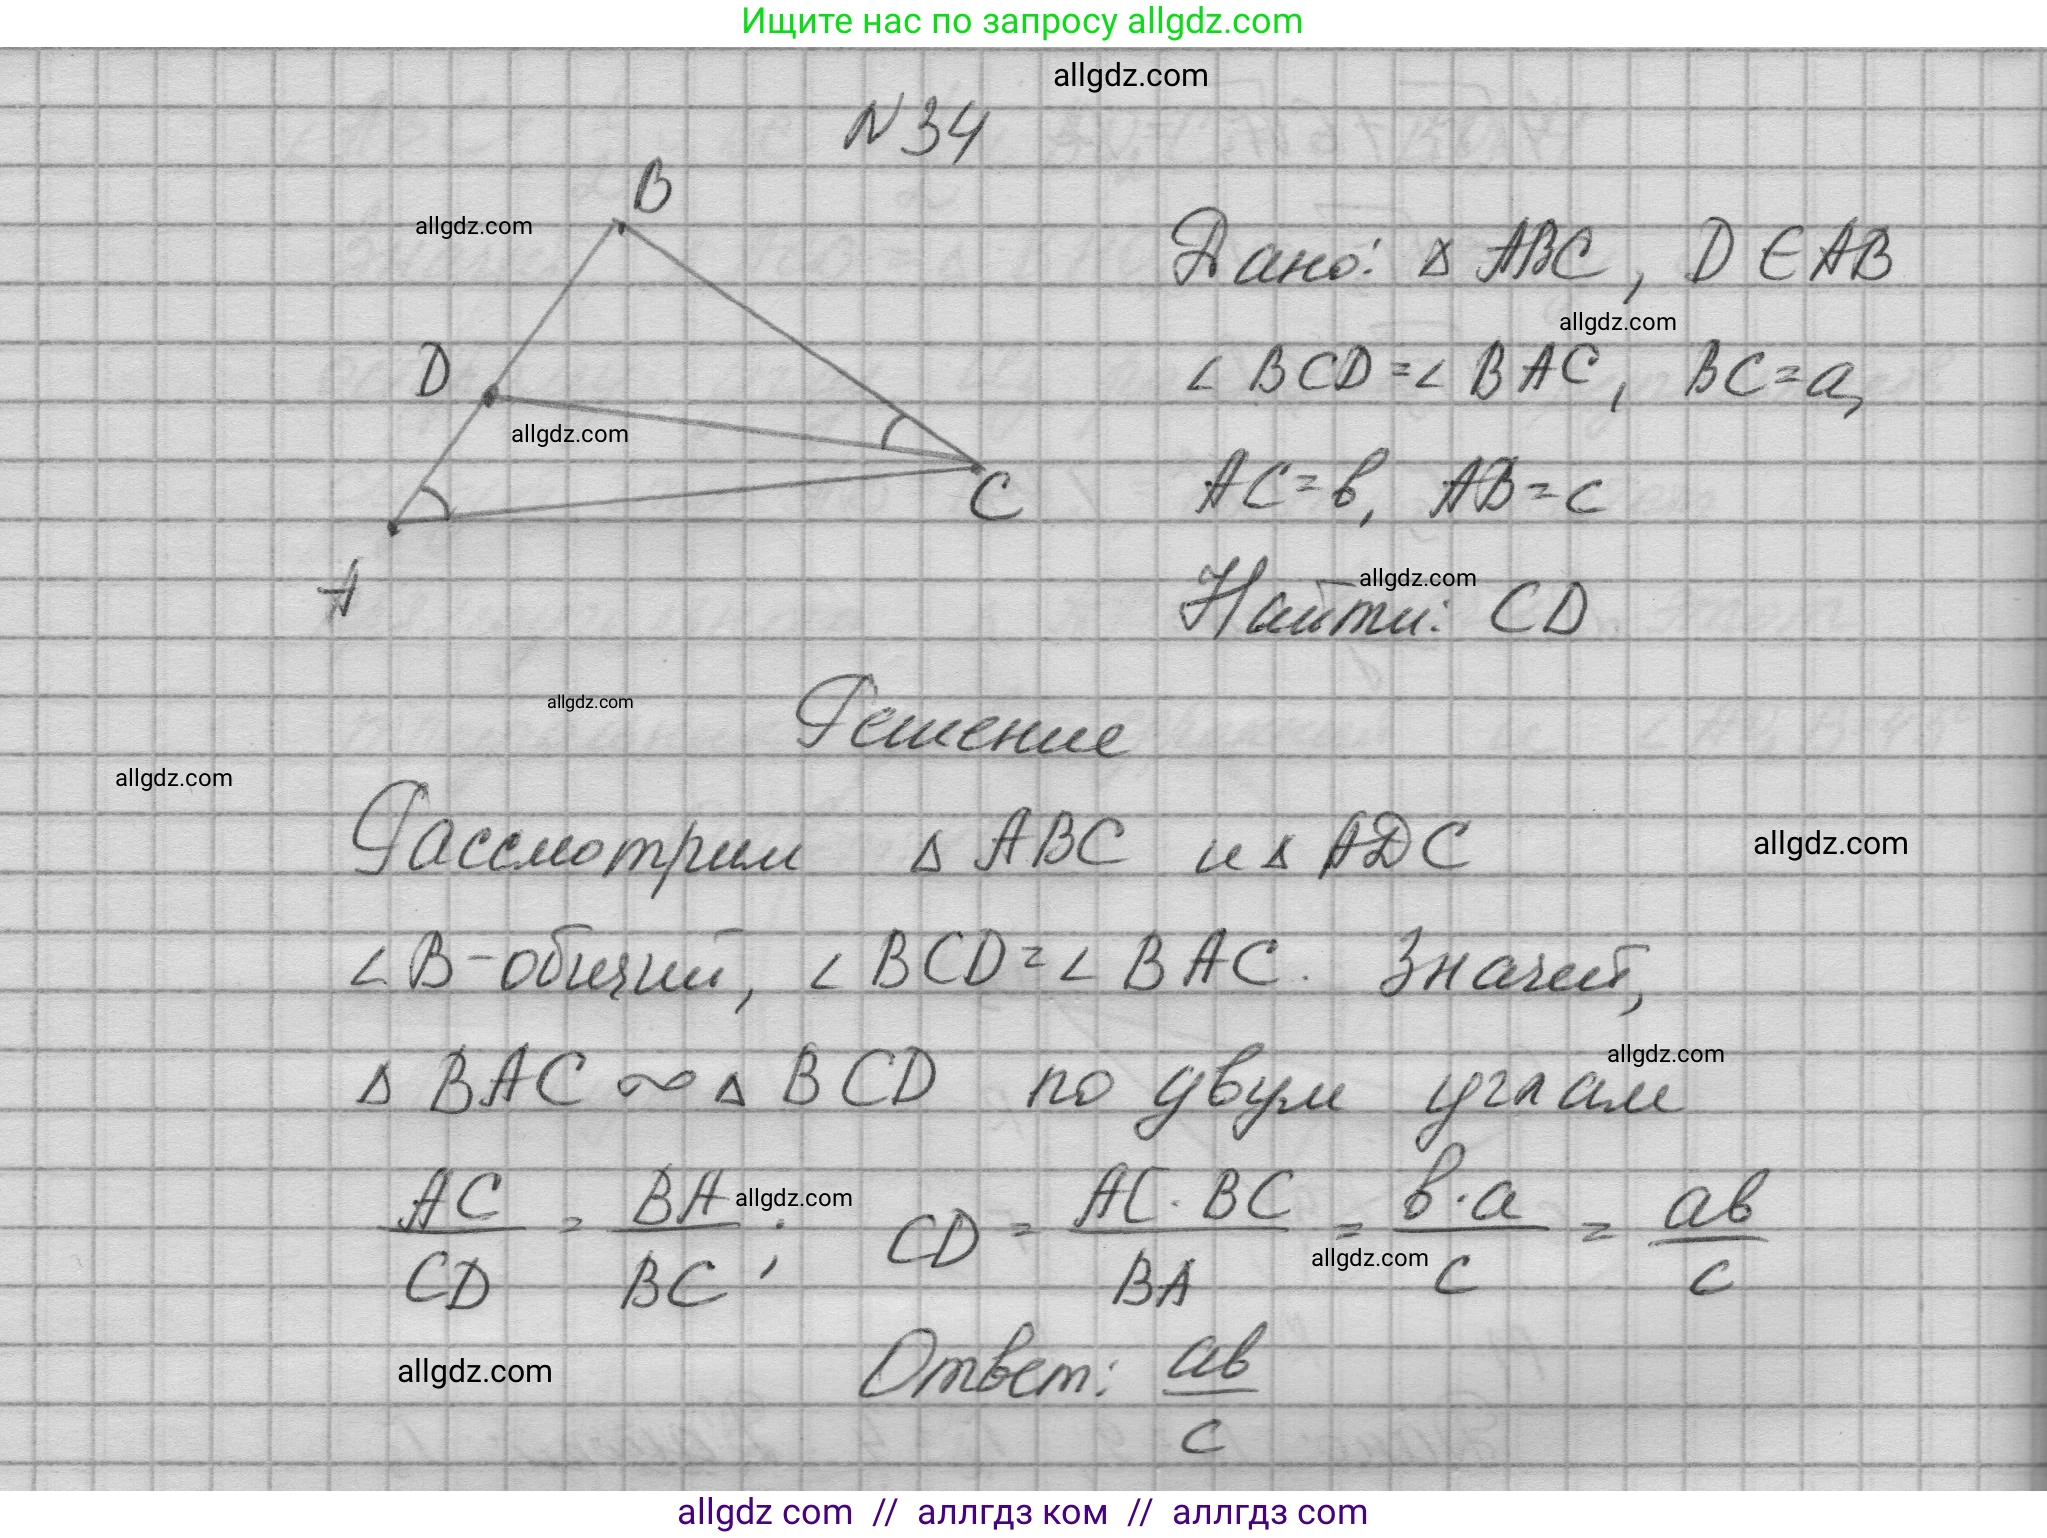 Ищите нас по запросу allgdz.com
allgdz.com
N 34
B
allgdz.com
Дано: Δ ABC, D ∈ AB
allgdz.com
D
∠ BCD = ∠ BAC, BC = a,
allgdz.com
AC = b, AB = c
C
A
allgdz.com
Найти: CD
allgdz.com
Решение
allgdz.com
Рассмотрим Δ ABC и Δ ADC
allgdz.com
∠ B - общий, ∠ BCD = ∠ BAC. Значит,
allgdz.com
Δ BAC ∾ Δ BCD по двум углам
AC/CD = BA/BC; CD = AC · BC/BA = b · a/c = ab/c
allgdz.com
allgdz.com
allgdz.com
Ответ: ab/c
allgdz com // аллгдз ком // аллгдз com